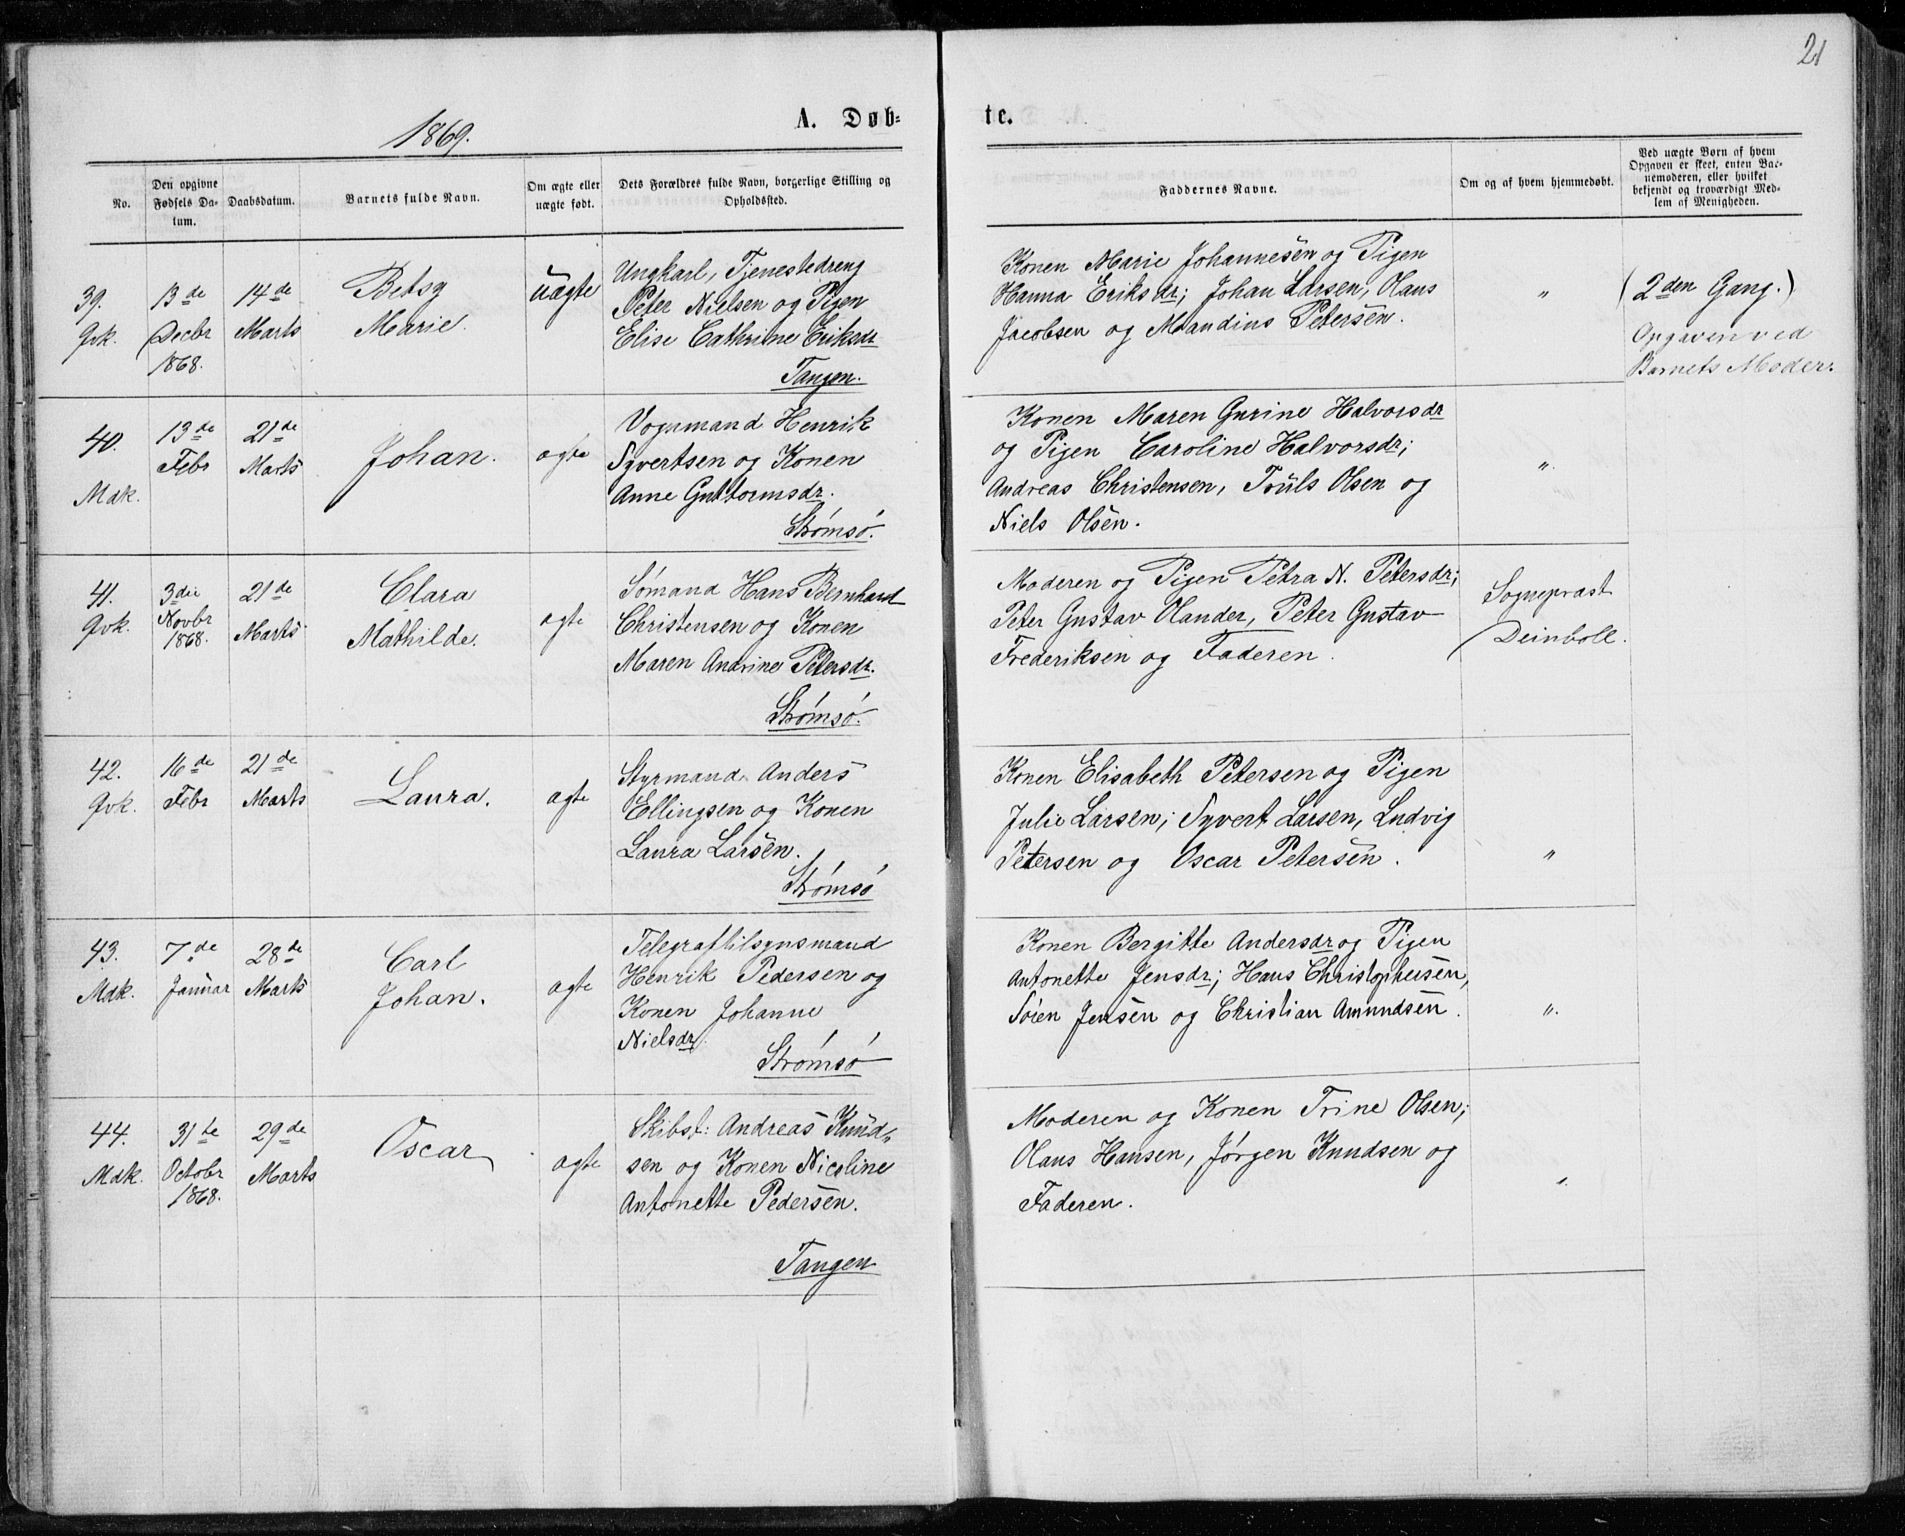 21
1869.
A. Døb-
te.
No.
Den opgivne
Fødsels Da-
tum.
Daabsdatum.
Barnets fulde Navn.
Om ægte eller
uægte født.
Dets Forældres fulde Navn, borgerlige Stilling og
Opholdssted.
Faddernes Navne.
Om og af hvem hjemmedøbt.
Ved uægte Børn af hvem
Opgaven er skeet, enten Bar-
nemoderen, eller hvilket
bekjendt og troværdigt Med-
lem af Menigheden.
39.
Qvk.
13de
Decbr
1868.
14de
Marts
Betsy
Marie.
uægte
Ungkarl, Tjenestedreng
Peter Nielsen og Pigen
Elise Cathrine Eriksdr
Tangen.
Konen Marie Johannesen og Pigen
Hanna Eriksdr; Johan Larsen, Olaus
Jacobsen og Mandius Petersen.
"
(2den Gang.)
Opgaven ved
Barnets Moder.
40.
Mdk.
13de
Febr
21de
Marts
Johan.
ægte
Vognmand Henrik
Syvertsen og Konen
Anne Guttormsdr.
Strømsö.
Konen Maren Gurine Halvorsdr
og Pigen Caroline Halvorsdr;
Andreas Christensen, Truls Olsen og
Niels Olsen.
"
41.
Qvk.
3die
Novbr
1868.
21de
Marts
Clara
Mathilde.
ægte
Sömand Hans Bernhard
Christensen og Konen
Maren Andrine Petersdr.
Strömsö.
Moderen og Pigen Petra N. Petersdr;
Peter Gustav Olander, Peter Gustav
Frederiksen og Faderen.
Sognepræst
Deinboll.
42.
Qvk.
16de
Febr
21de
Marts
Laura.
ægte
Styrmand Anders
Ellingsen og Konen
Laura Larsen.
Strömsö
Konen Elisabeth Petersen og Pigen
Julie Larsen; Syvert Larsen, Ludvig
Petersen og Oscar Petersen.
"
43.
Mdk.
7de
Januar
28de
Marts
Carl
Johan.
ægte
Telegraftilsynsmand
Henrik Pedersen og
Konen Johanne
Nielsdr
Strömsö
Konen Bergitte Andersdr og Pigen
Antonette Jensdr; Hans Christophersen,
Sören Jensen og Christian Amundsen.
"
44.
Mdk.
31te
Octobr
1868.
29de
Marts
Oscar
ægte
Skibst: Andreas Knud-
sen og Konen Nicoline
Antonette Pedersen.
Tangen
Moderen og Konen Trine Olsen;
Olaus Hansen, Jörgen Knudsen og
Faderen.
"